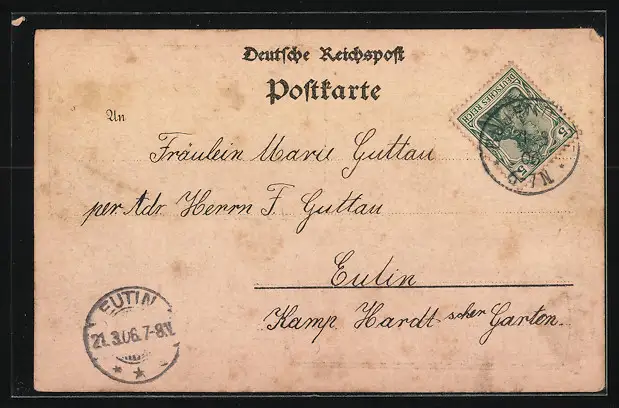 Deutsche Reichspost
Postkarte
An
Fräulein Marie Guttau
per. Adr. Herrn F. Guttau
Eutin
Kamp Hardt schen Garten.
DEUTSCHES REICH
5
EUTIN
21.3.06.7-8N.